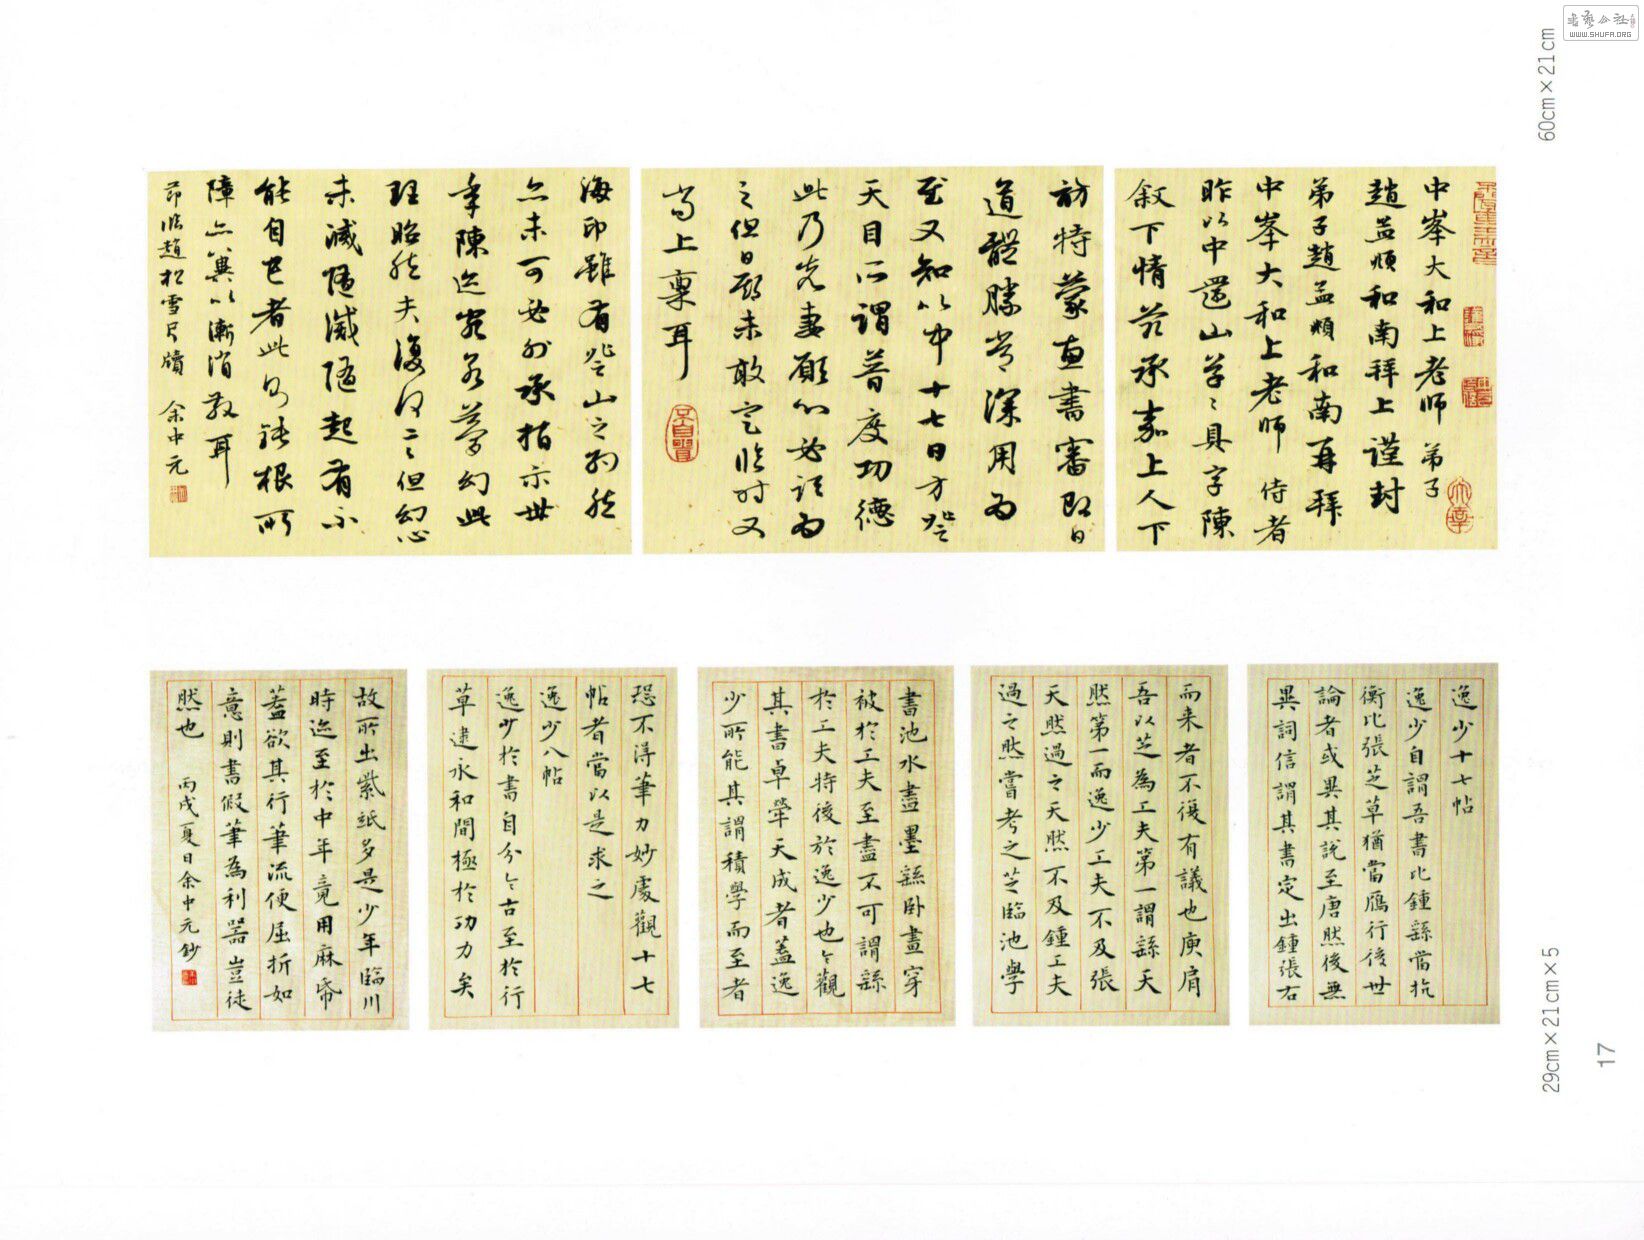 中峯大和上老师 弟子
趙孟頫和南拜上 謹封
弟子趙孟頫和南再拜
中峯大和上老师 侍者
昨以中還山草〻具字陳
叙下情茲承嘉上人下
訪特蒙惠書審即日
道體勝常深用为
至又知以中十七日方登
天目所謂普度功德
此乃先妻願心必須为
之但日願未敢定臨时又
當上稟耳
海印雖有登山之約然
亦未可必外承指示世
事陳迹宛若夢幻此
理昭然夫復何言但幻心
未滅隨滅隨起有不
能自已者此則鈍根所
障亦冀以漸消散耳
節臨趙松雪尺牘 余中元
60cm×21cm
逸少十七帖
逸少自謂吾書比鍾繇當抗
衡比張芝草猶當鴈行後世
論者或異其說至唐然後無
異詞信謂其書定出鍾張右
而来者不復有議也庾肩
吾以芝為工夫第一謂繇天
然第一而逸少工夫不及張
天然過之天然不及鍾工夫
過之然嘗考之芝臨池學
書池水盡墨繇卧畫穿
被於工夫至盡不可謂繇
於工夫特後於逸少也今觀
其書卓犖天成者蓋逸
少所能其謂積學而至者
恐不得筆力妙處觀十七
帖者當以是求之
逸少八帖
逸少於書自分今古至於行
草逮永和間極於功力矣
故所出紫紙多是少年臨川
時迹至於中年竟用麻帋
蓋欲其行筆流便屈折如
意則書假筆為利器豈徒
然也 丙戌夏日余中元鈔
29cm×21cm×5
17
書藝公社
WWW.SHUFA.ORG